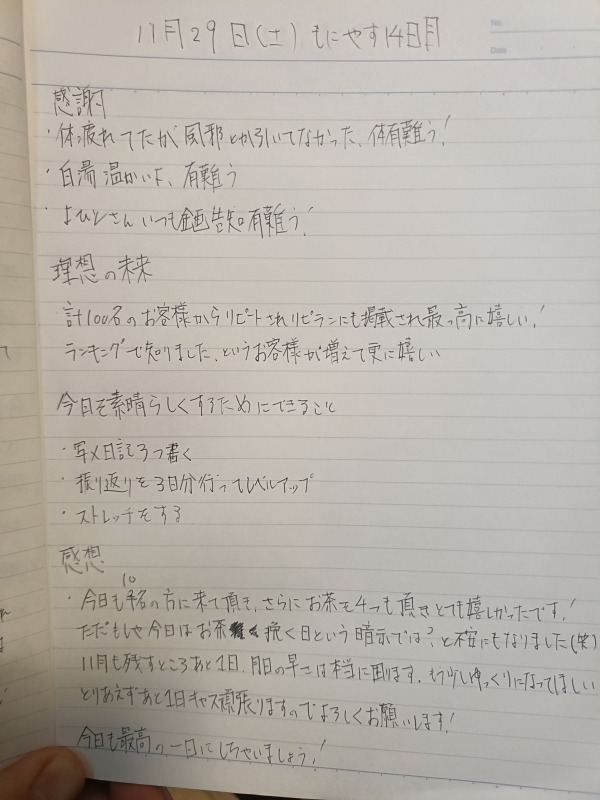 11月29日(土) もにやす14日目
No.
Date
感謝
・体疲れてたが風邪とか引いてなかった、体有難う!
・白湯温かいよ、有難う
・よひとさんいつも企画告知有難う!
理想の未来
計100名のお客様からリピートされリピランにも掲載され最っ高に嬉しい!
ランキングで知りました、というお客様が増えて更に嬉しい
今日を素晴らしくするためにできること
・写メ日記3つ書く
・振り返りを3日分行ってレベルアップ
・ストレッチをする
感想
10
・今日も名の方に来て頂き、さらにお茶を4つも頂きとても嬉しかったです!
ただもしや今日はお茶挽く日という暗示では?と不安にもなりました(笑)
11月も残すところあと1日、月日の早さは本当に困ります。もう少しゆっくりになってほしい
とりあえずあと1日キャス頑張りますのでよろしくお願いします!
今日も最高の一日にしちゃいましょう!